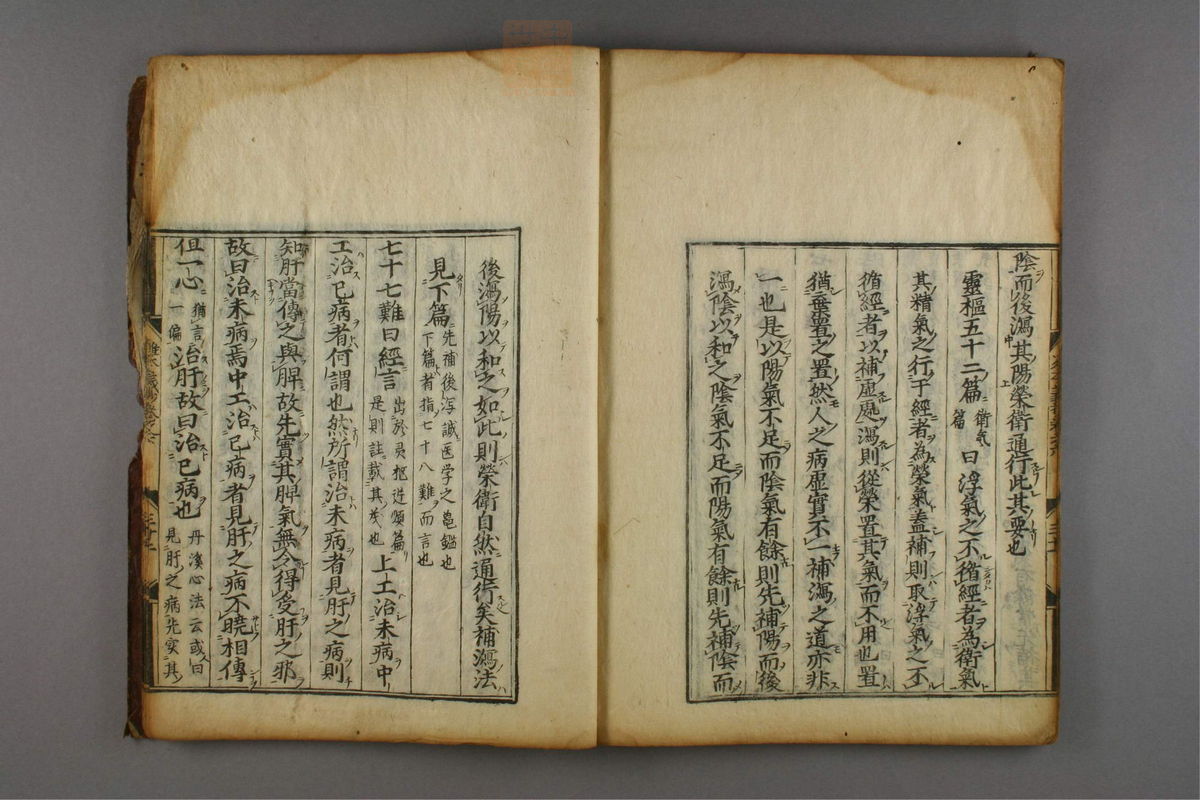 陰而後瀉其陽榮衛通行此其要也
靈樞五十二篇衛氣篇曰浮氣之不循經者為衛氣
其精氣之行于經者為榮氣蓋補則取浮氣之不
循經者以補虛處瀉則從榮置其氣而不用也置
猶棄置之置然人之病虛實不一補瀉之道亦非
一也是以陽氣不足而陰氣有餘則先補陽而後
瀉陰以和之陰氣不足而陽氣有餘則先補陰而
後瀉陽以和之如此則榮衛自然通行矣補瀉法
見下篇先補後泻誠医学之亀鑑也下篇者指七十八難而言也
七十七難曰經言是則註載其茂也上工治未病中
工治已病者何謂也然所謂治未病者見肝之病則
知肝當傳之與脾故先實其脾氣無令得受肝之邪
故曰治未病焉中工治已病者見肝之病不曉相傳
但一心猶言一偏治肝故曰治已病也丹溪心法云或曰見肝之病先实其